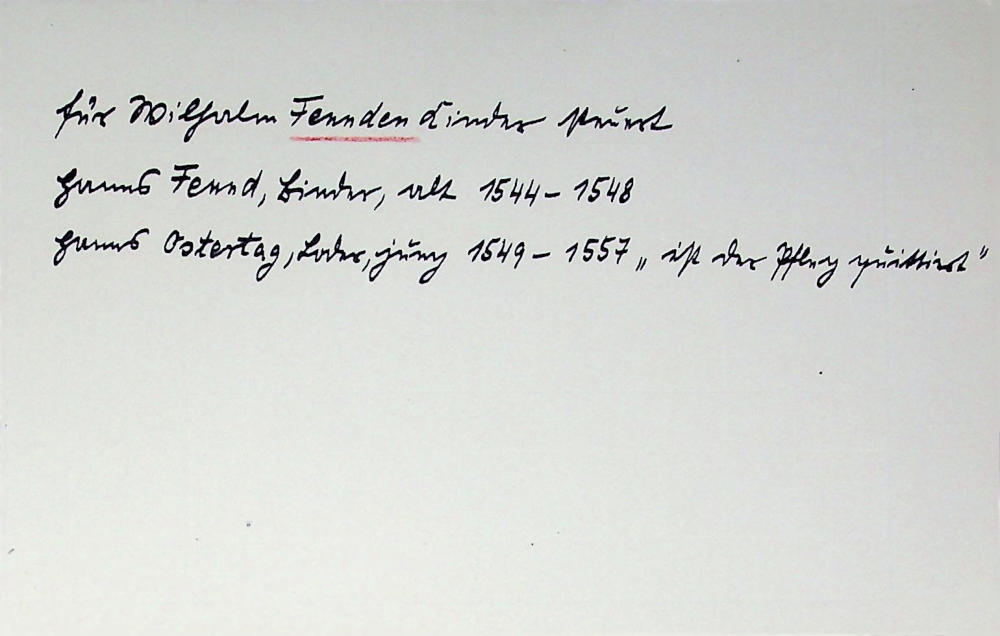 für Wilhalm Fennden Kinder steuert
Hanns Fennd, Binder, alt 1544 – 1548
Hanns Ostertag, Loder, jung 1549 – 1557 „ ist der Pfleg quittiert "